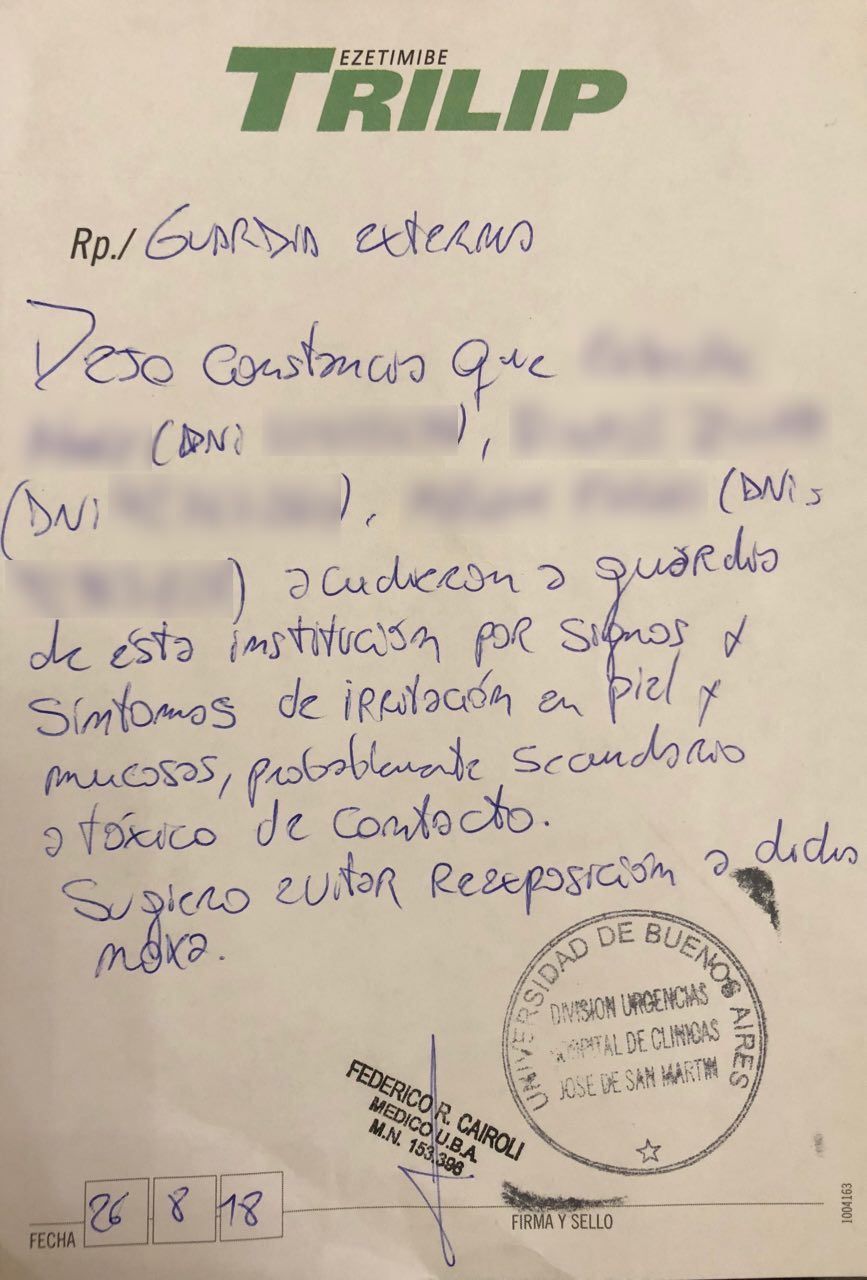 EZETIMIBE
TRILIP
Rp./ GUARDIA externa
Dejo constancia que
(DNI ),
(DNI ), (DNI
) acudieron a guardia
de ésta institución por signos y
síntomas de irritación en piel y
mucosas, probablemente secundario
a tóxico de contacto.
Sugiero evitar reexposición a dicha
noxa.
UNIVERSIDAD DE BUENOS AIRES
DIVISION URGENCIAS
HOSPITAL DE CLINICAS
JOSE DE SAN MARTIN
FEDERICO R. CAIROLI
MEDICO U.B.A.
M.N. 153.396
FECHA 26 8 18
FIRMA Y SELLO
1004163